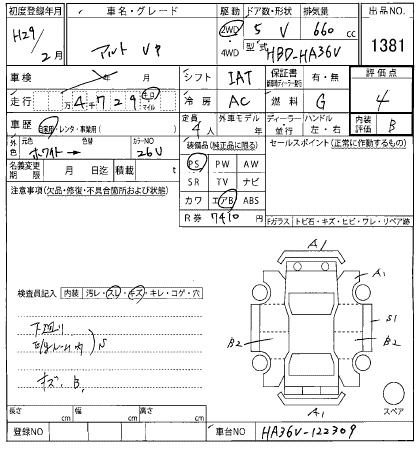 初度登録年月 車名・グレード 駆動 ドア数・形状 排気量 出品NO
H29/2月 アルト VP 2WD 4WD 5 V 660 cc 1381
型式 HBD-HA36V
車検 年 月 シフト IAT 保証書 有・無 評価点
走行 万4千729 キロ マイル 冷房 AC 燃料 G 4
車歴 自家用・レンタ・事業用( ) 定員 4人 外車モデル ディーラー 並行 ハンドル 左・右 内装評価 B
外色 元色 ホワイト → 色替 カラーNO 26U 装備品(純正品に限る) セールスポイント(正常に作動するもの)
名義変更期限 月 日迄 積載 t PS PW AW
注意事項(欠品・修復・不具合箇所および状態) SR TV ナビ
カワ エアB ABS
R券 7410円 Fガラス トビ石・キズ・ヒビ・ワレ・リペア跡
A1
A1
検査員記入 内装 汚レ・スレ・キズ・キレ・コゲ・穴
S1
下廻り
B2 B2
S
キズ B,
A1 スペア
長さ cm 幅 cm 高さ cm
登録NO 車台NO HA36V-122309